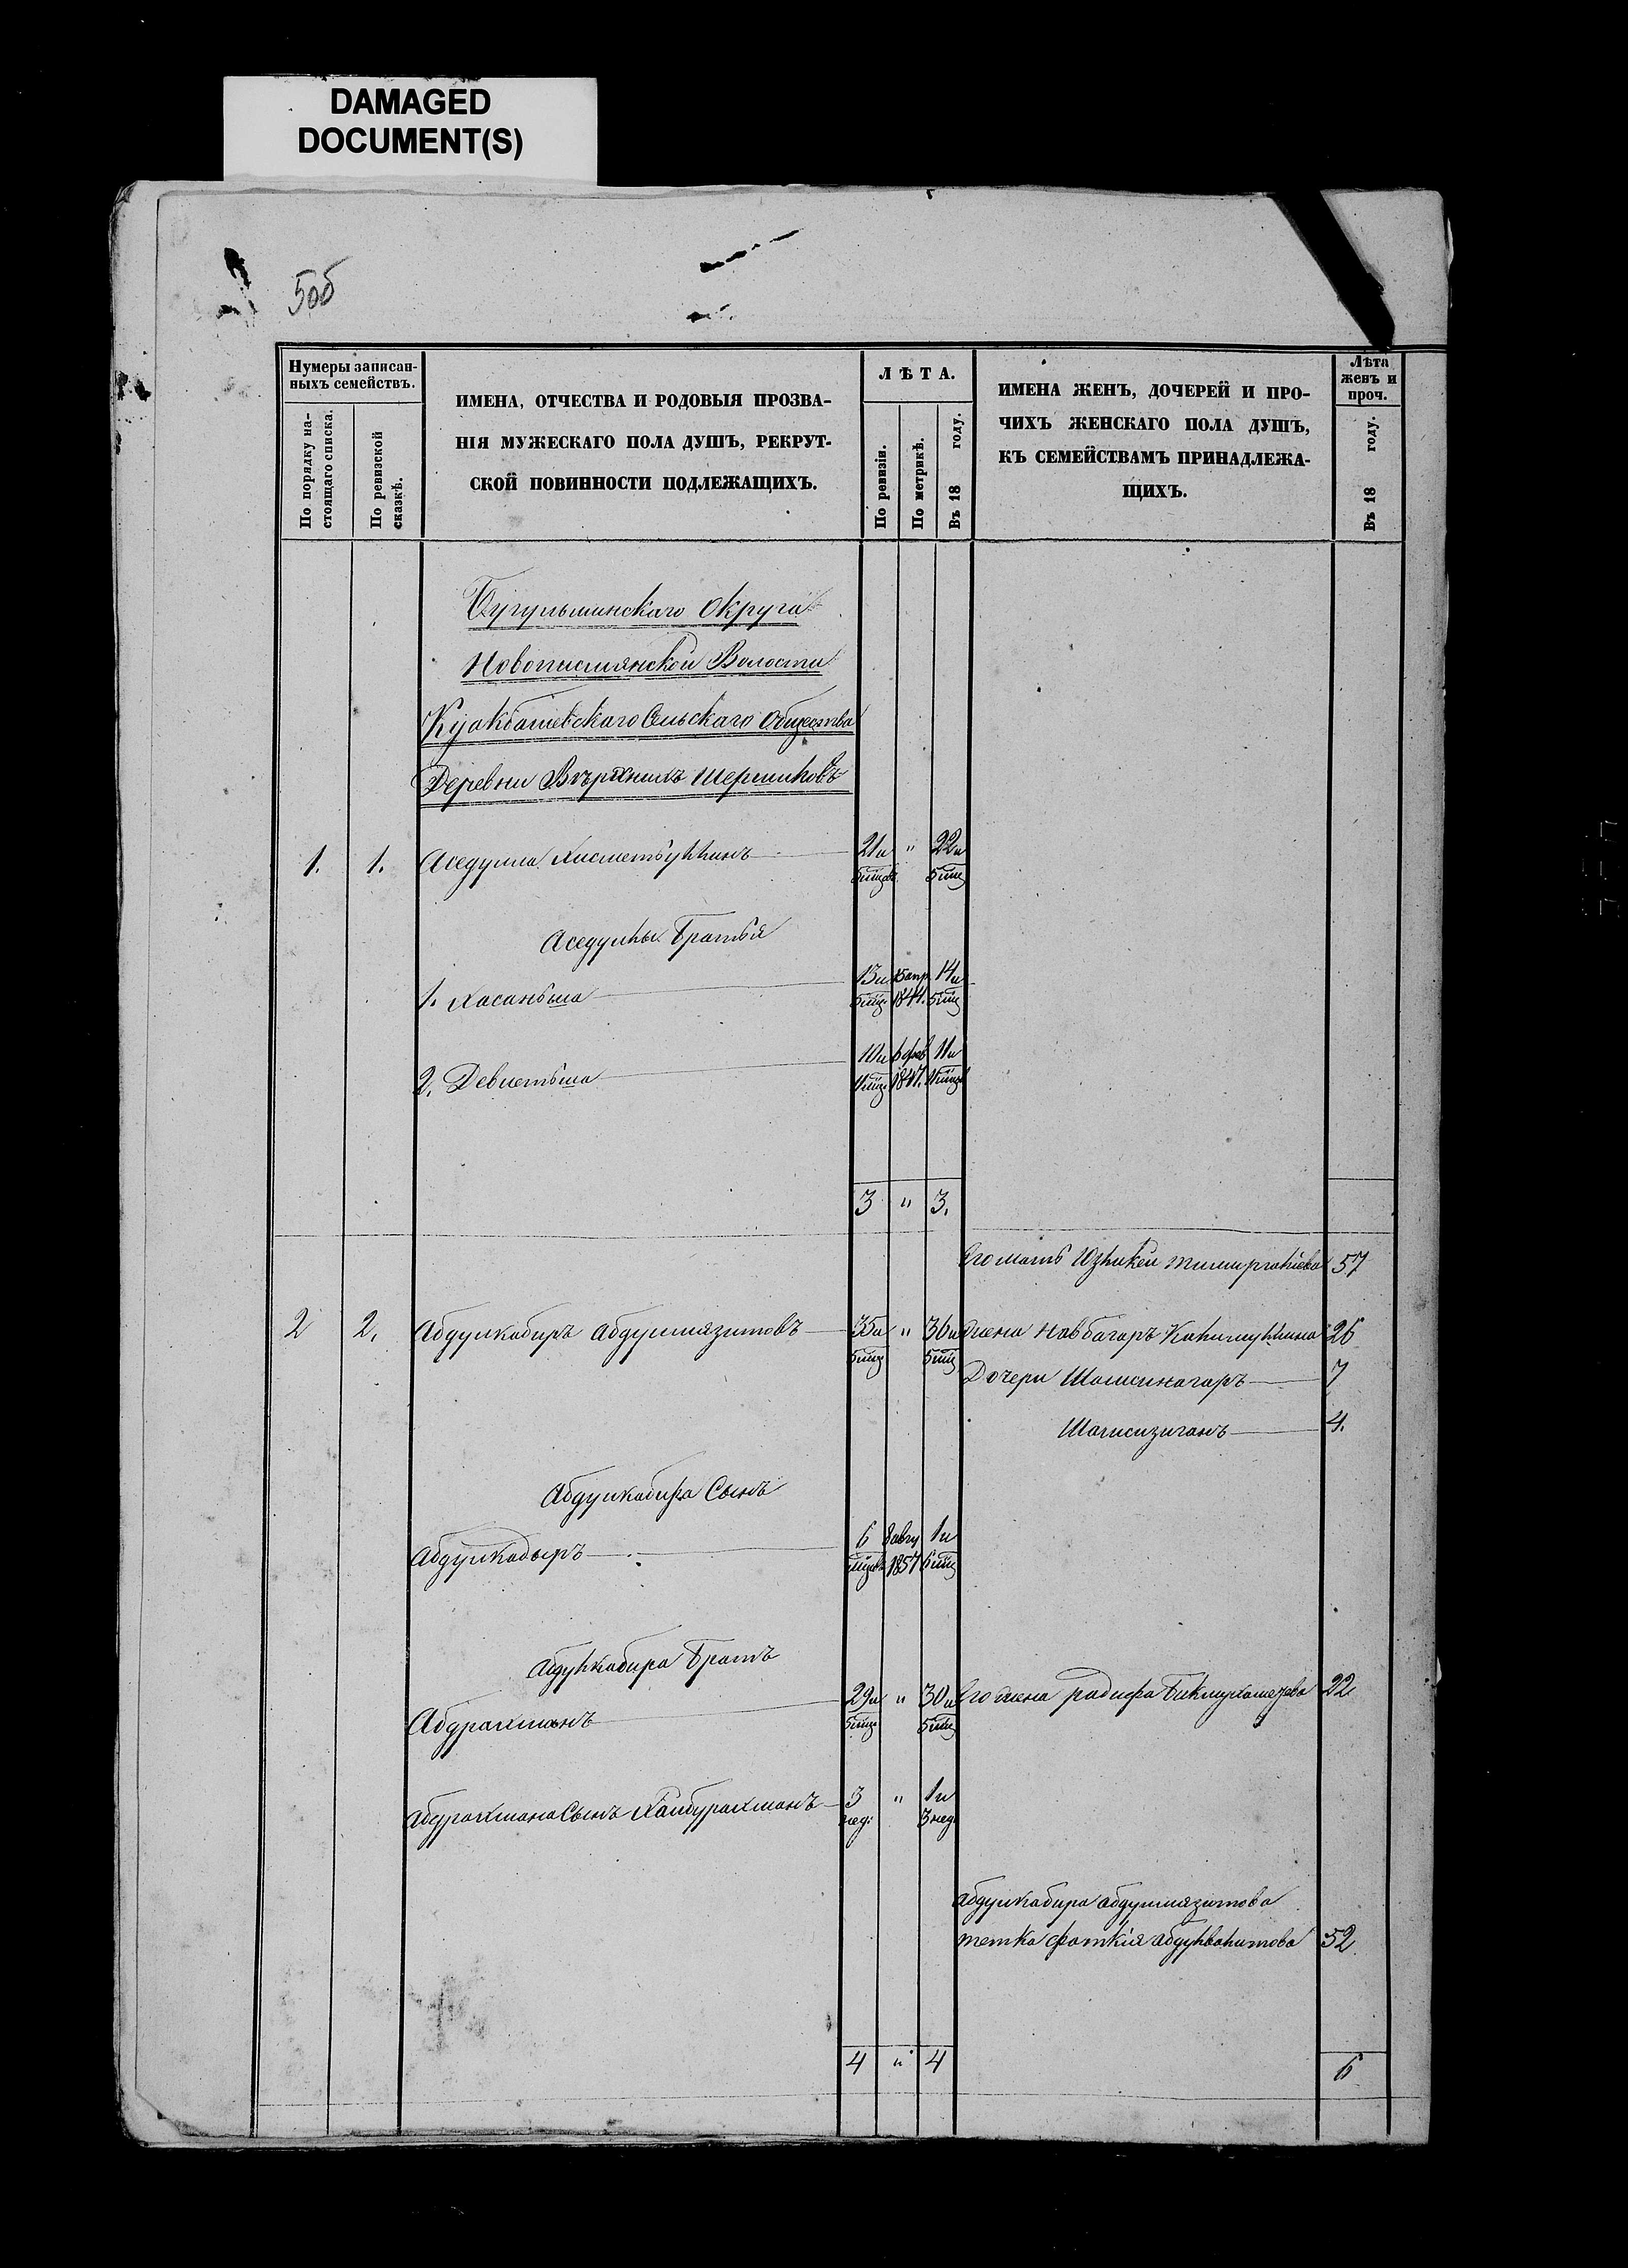 DAMAGED
DOCUMENT(S)
5об
Нумеры записан-
ныхъ семействъ.
По порядку на-
стоящаго списка.
По ревизской
сказкѣ.
ИМЕНА, ОТЧЕСТВА И РОДОВЫЯ ПРОЗВА-
НІЯ МУЖЕСКАГО ПОЛА ДУШЪ, РЕКРУТ-
СКОЙ ПОВИННОСТИ ПОДЛЕЖАЩИХЪ.
ЛѢТА.
По ревизіи.
По метрикѣ.
Въ 18 году.
ИМЕНА ЖЕНЪ, ДОЧЕРЕЙ И ПРО-
ЧИХЪ ЖЕНСКАГО ПОЛА ДУШЪ,
КЪ СЕМЕЙСТВАМЪ ПРИНАДЛЕЖА-
ЩИХЪ.
Лѣта
женъ и
проч.
Въ 18 году.
Бугульминскаго Округа
Новописмянской Волости
Куакбашевскаго Сельскаго Общества
Деревни Верхнихъ Шершиловъ
1. 1. Аседулла Хисметуллинъ 21 и " 22 и
5 мцов 5 мц
Аседуллы Братья
1. Хасаньша 13 и 15 апр. 14 и
5 мц. 1844. 5 мц
2. Девлетьша 10 и 6 фев 11 и
11 мц. 1847. 11 мц.
3 " 3.
Его мать Юзликей Тимиргалiева 57
2 2. Абдулкабиръ Абдулмязитовъ 35 и " 36 и Жена Навбагаръ Калимуллина 26
5 мц 5 мц
Дочери Шамсинагаръ 7
Шагисизиганъ 4.
Абдулкабира Сынъ
Абдулкадыръ 6 8 авгу 1 и
мцов 1857 6 мц
Абдулкабира Братъ
Абдрахманъ 29 и " 30 и Его жена Радифа Бикмухаметева 22
5 мц. 5 мц
Абдрахмана Сынъ Хайбурахманъ 3 " 1 и
нед: 3 нед.
Абдулкабира Абдулмязитова
тетка Фаткiя Абдулвагитова 52
4 " 4 6